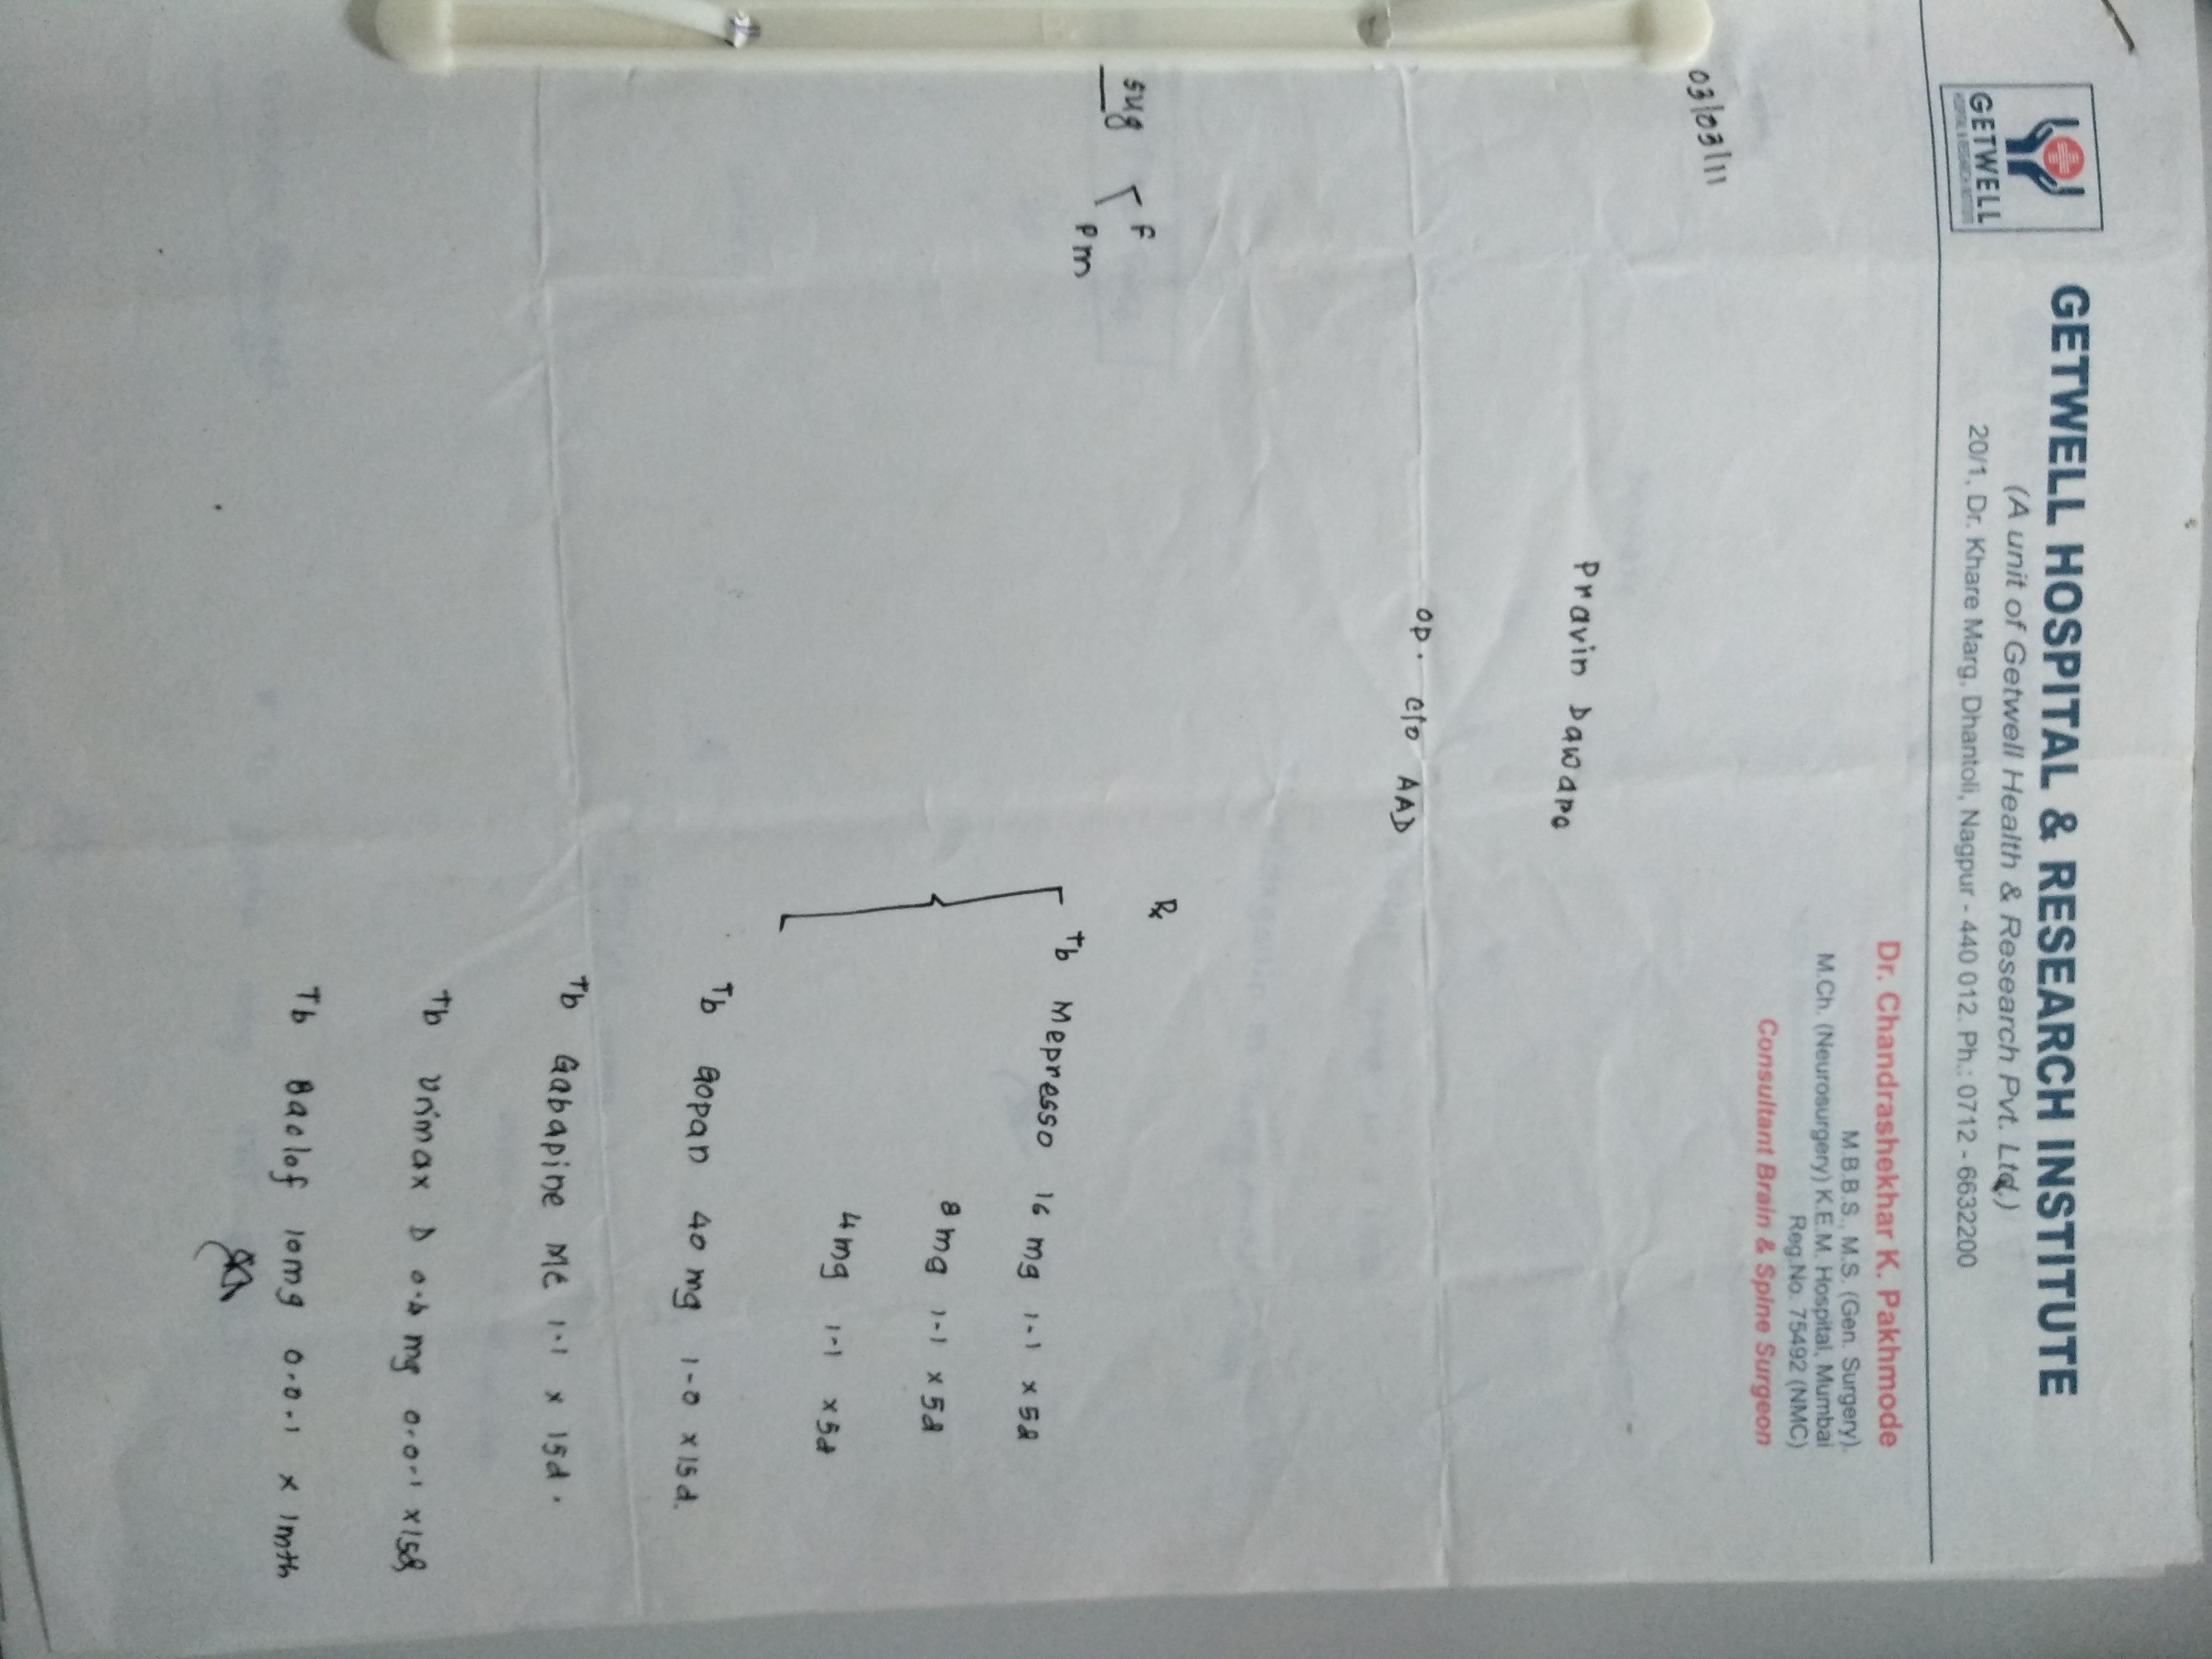 GETWELL
GETWELL HOSPITAL & RESEARCH INSTITUTE
(A unit of Getwell Health & Research Pvt. Ltd.)
20/1, Dr. Khare Marg, Dhantoli, Nagpur - 440 012. Ph.: 0712 - 6632200
Dr. Chandrashekhar K. Pakhmode
M.B.B.S., M.S. (Gen. Surgery).
M.Ch. (Neurosurgery) K.E.M. Hospital, Mumbai
Reg.No. 75492 (NMC)
Consultant Brain & Spine Surgeon
03/03/11
Pravin Dawape
op. c/o AAD
sug F
Pm
Rx
Tb Mepresso 16 mg 1-1 x 5d
8 mg 1-1 x 5d
4 mg 1-1 x 5d
Tb Gopan 40 mg 1-0 x 15d.
Tb Gabapine Me 1-1 x 15d.
Tb Urimax D 0.4 mg 0-0-1 x 15d
Tb Baclof 10mg 0-0-1 x 1mth